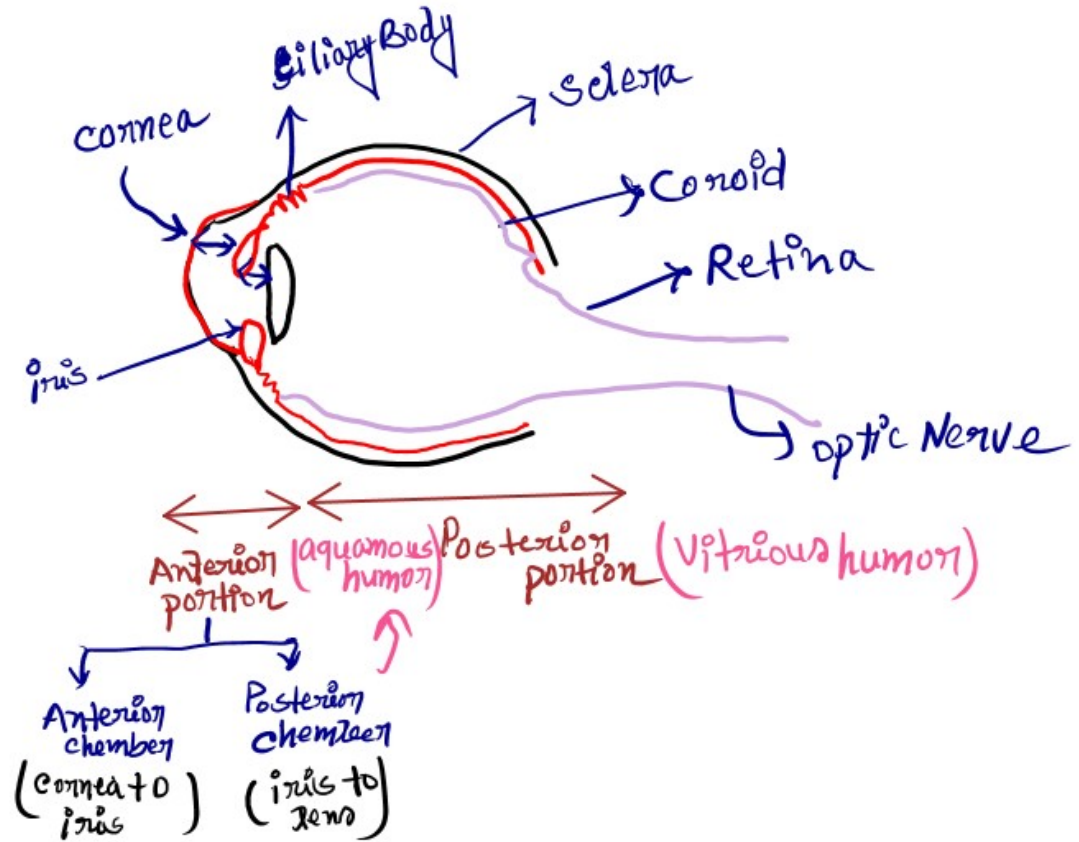 Ciliary Body
Sclera
cornea
Coroid
Retina
iris
optic Nerve
Anterior
portion
(aquamous
humor)
Posterior
portion
(Vitrious humor)
Anterior
chember
(Cornea to
iris)
Posterior
chember
(iris to
lens)